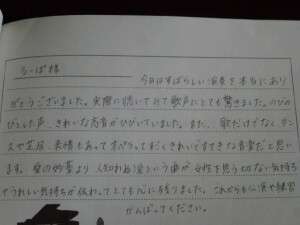 るーぱ様
今日はすばらしい演奏を本当にあり
がとうございました。実際に聴いてみて歌声にとても驚きました。のびの
びした声、きれいな高音がひびいていました。また、歌だけでなく、ダン
スや芝居、表情もあってオペラってすごくきれいですてきな音楽だと思い
ます。愛の妙薬より人知れぬ涙という曲が女性を思う切ない気持ち
やうれしい気持ちが伝わってとても心に残りました。これからも公演や練習
がんばってください。